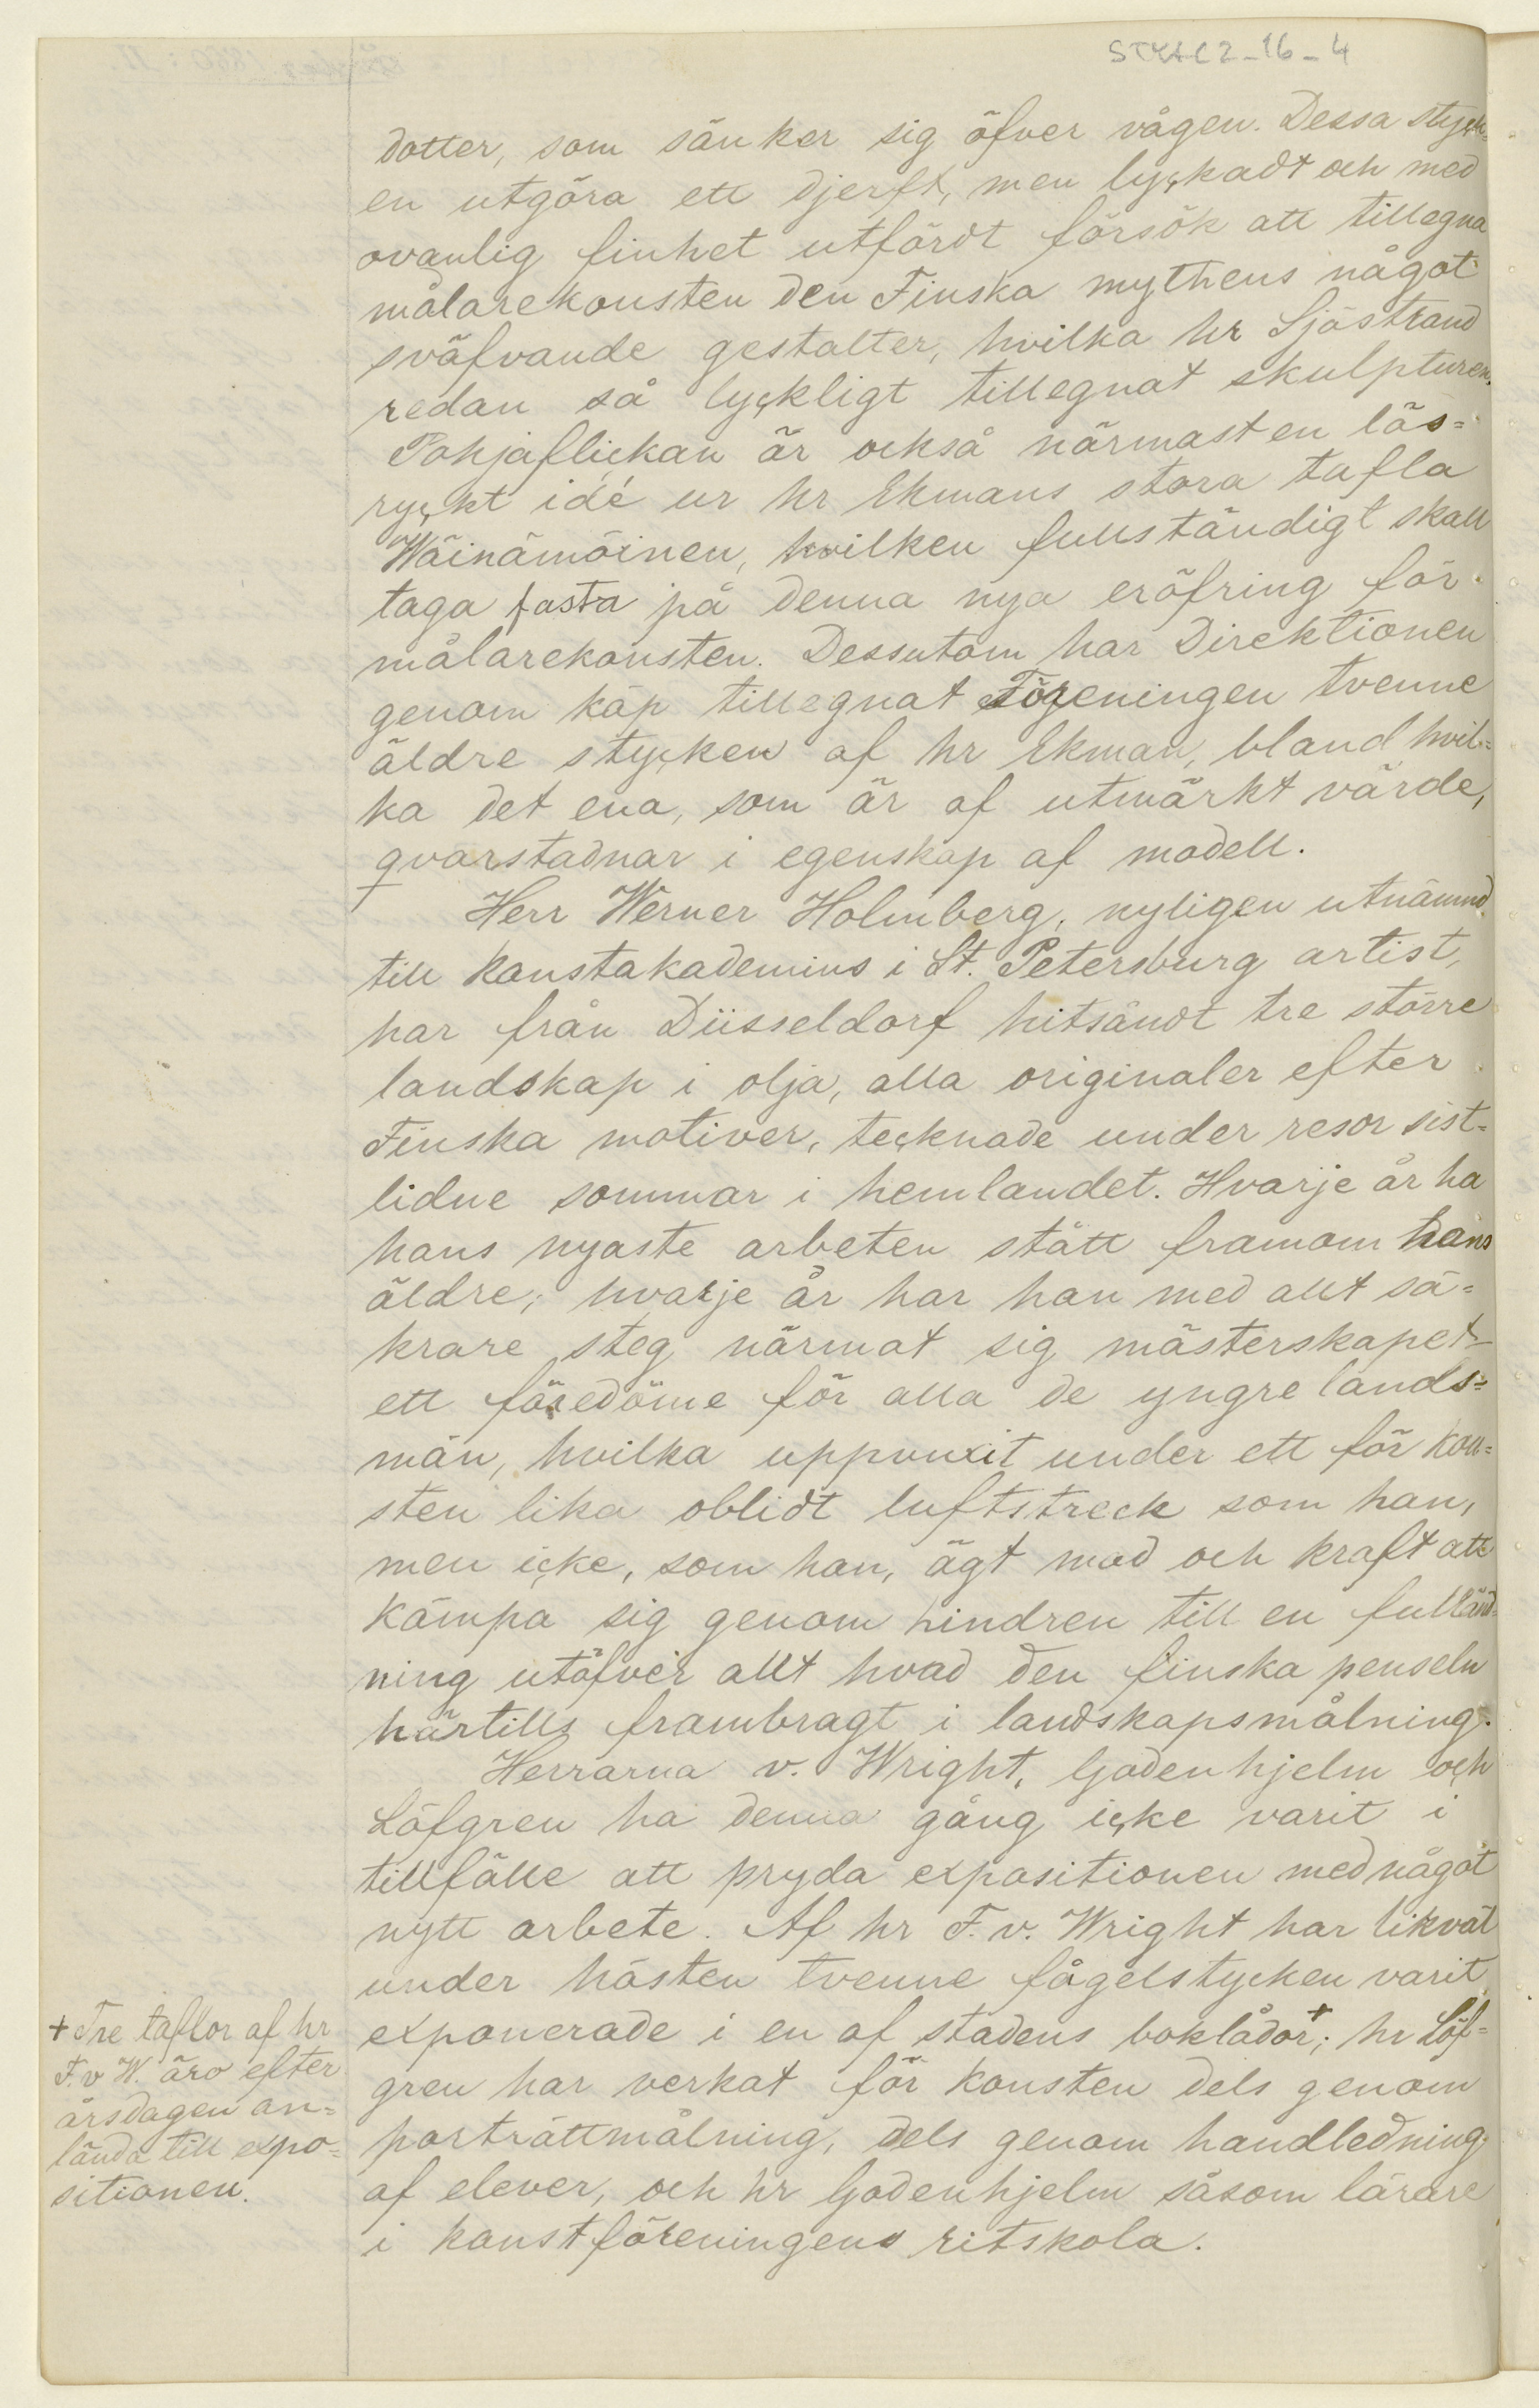 STYLC2-16-4
dotter, som sänker sig öfver vågen. Dessa styck=
en utgöra ett djerft, men lyckadt och med
ovanlig finhet utfördt försök att tillegna
målarekonsten den Finska mythens något
sväfvande gestalter, hvilka hr Sjöstrand
redan så lyckligt tillegnat skulpturen.
Pohjaflickan är också närmast en lös=
ryckt idé ur hr Ekmans stora tafla
Wäinämöinen, hvilken fullständigt skall
taga fasta på denna nya eröfring för
målarekonsten. Dessutom har Direktionen
genom köp tillegnat Föreningen tvenne
äldre stycken af hr Ekman, bland hvil=
ka det ena, som är af utmärkt värde,
qvarstadnar i egenskap af modell.
Herr Werner Holmberg, nyligen utnämnd
till konstakademins i St. Petersburg artist,
har från Düsseldorf hitsändt tre större
landskap i olja, alla originaler efter
Finska motiver, tecknade under resor sist=
lidne sommar i hemlandet. Hvarje år ha
hans nyaste arbeten stått framom hans
äldre; hvarje år har han med allt sä=
krare steg närmat sig mästerskapet
ett föredöme för alla de yngre lands=
män, hvilka uppvuxit under ett för kon=
sten lika oblidt luftstreck som han,
men icke, som han, ägt mod och kraft att
kämpa sig genom hindren till en fulländ=
ning utöfver allt hvad den finska penseln
härtills frambragt i landskapsmålning.
Herrarna v. Wright, Godenhjelm och
Löfgren ha denna gång icke varit i
tillfälle att pryda expositionen med något
nytt arbete. Af hr F. v. Wright har likväl
under hösten tvenne fågelstycken varit
exponerade i en af stadens boklådor+; hr Löf=
gren har verkat för konsten dels genom
porträttmålning, dels genom handledning
af elever, och hr Godenhjelm såsom lärare
i konstföreningens ritskola.
+ Tre taflor af hr
F. v W. äro efter
årsdagen an=
lända till expo=
sitionen.